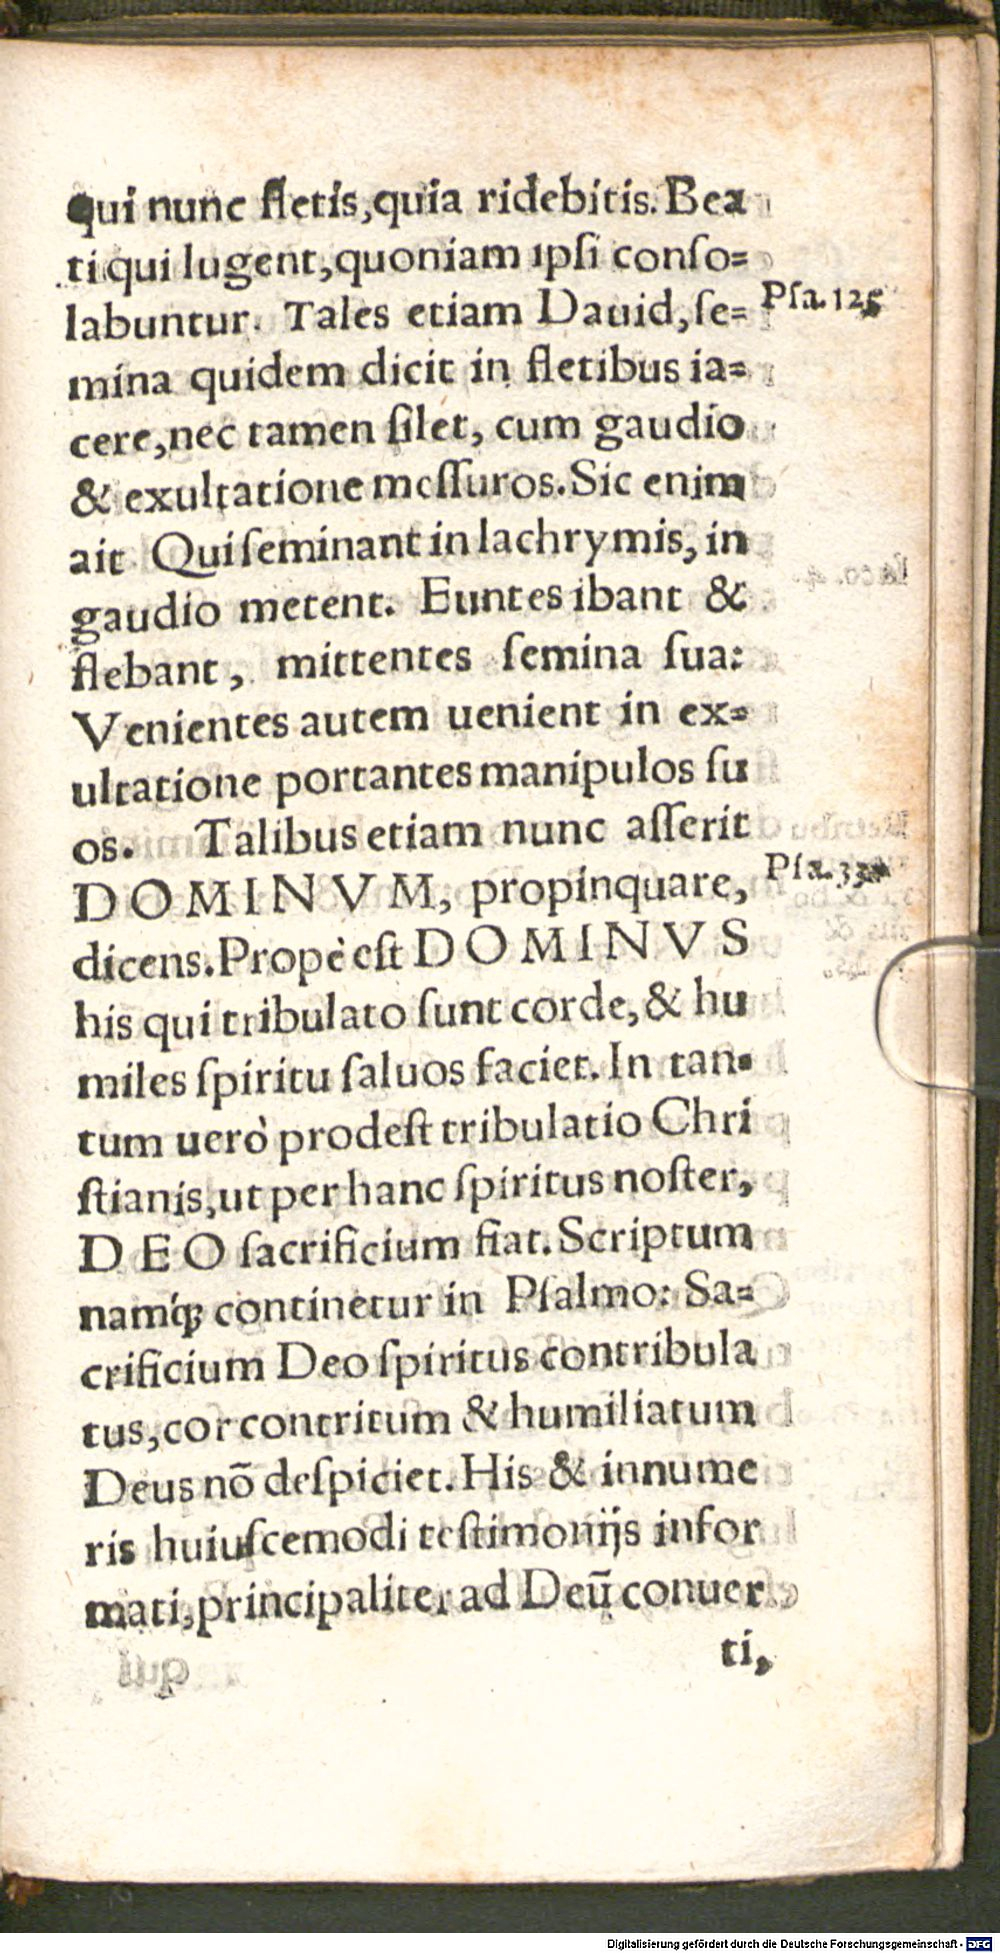 qui nunc fletis, quia ridebitis. Bea
ti qui lugent, quoniam ipſi conſo=
labuntur. Tales etiam Dauid, ſe=
Pſa. 125
mina quidem dicit in fletibus ia=
cere, nec tamen ſilet, cum gaudio
& exultatione meſſuros. Sic enim
ait Qui ſeminant in lachrymis, in
gaudio metent. Euntes ibant &
flebant, mittentes ſemina ſua:
Venientes autem uenient in ex=
ultatione portantes manipulos ſu
os. Talibus etiam nunc aſſerit
DOMINVM, propinquare,
Pſa. 33
dicens. Propè eſt DOMINVS
his qui tribulato ſunt corde, & hu
miles ſpiritu ſaluos faciet. In tan=
tum uerò prodeſt tribulatio Chri
ſtianis, ut per hanc ſpiritus noſter,
DEO ſacrificium fiat. Scriptum
namq́; continetur in Pſalmo: Sa=
crificium Deo ſpiritus contribula
tus, cor contritum & humiliatum
Deus nō deſpiciet. His & innume
ris huiuſcemodi teſtimonijs infor
mati, principaliter ad Deū conuer
ti,
Digitalisierung gefördert durch die Deutsche Forschungsgemeinschaft - DFG